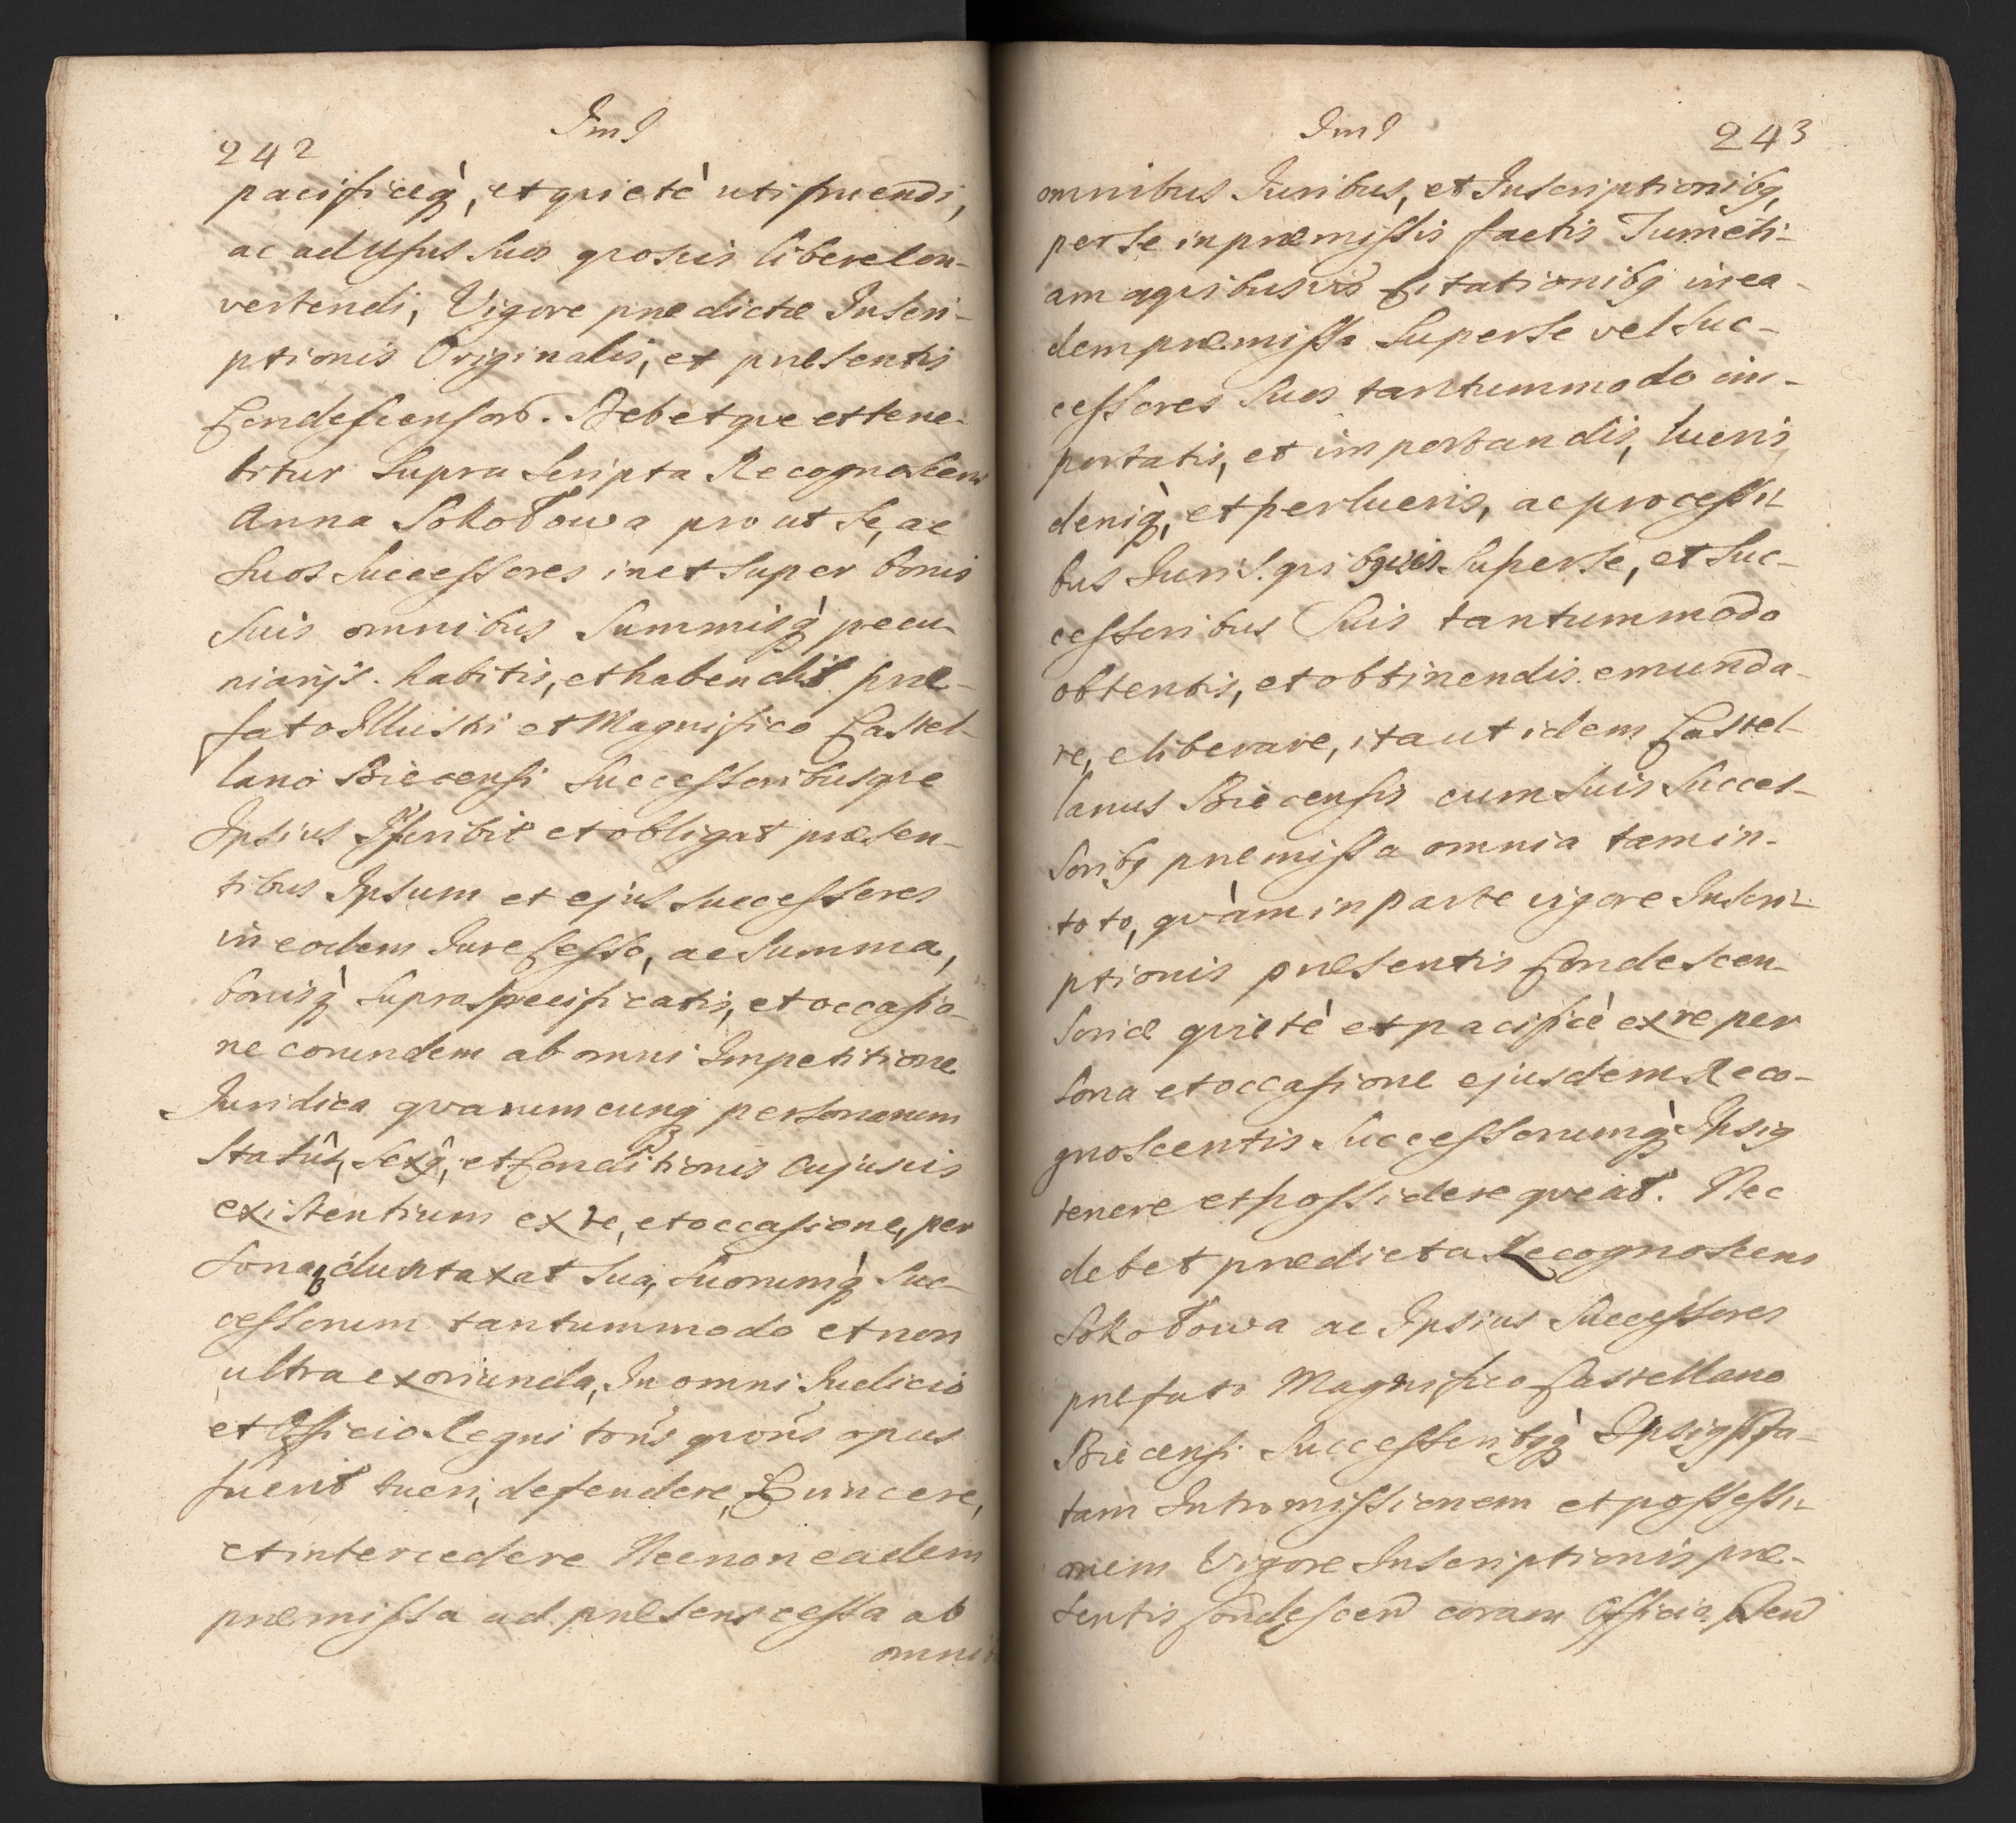 242
ImJ
pacificeq̀, et quietè uti fruendi,
ac ad Usus suos quosvis libere con-
vertendi, Vigore prædictæ Inscri-
ptionis Originalis, et præsentis
Condescensor. Debetque et tene-
bitur supra scripta Recognoscens
Anna Sokołowa prout se, ac
suos Successores in et super bonis
suis omnibus Summisq̀ pecu-
niarijs habitis, et habendis præ-
fato Illustri et Magnifico Castel-
lano Biecensi Successoribusque
Ipsius Jscribit et obligat præsen-
tibus Ipsum et ejus Successores
in eodem Jure Cesso, ac Summa,
bonisq̀ supra specificatis, et occasio-
ne eorundem ab omni Impetitione
Juridica quarumcunq personarum
Statûs, Sexq̂, et Conditionis cujusvis
existentium ex re, et occasione, per
sonaq duntaxat sua, suorumq̀ Suc-
cessorum tantummodo et non
ultra exoriunda, In omni Judicio
et Officio Regni tons quons opus
fuerit tueri, defendere, Evincere,
et intercedere Necnon eadem
præmissa ad præsens cessa ab
omnib
ImJ
243
omnibus Juribus, et Inscriptionibq,
per se in præmissis factis Tum eti-
am a quibusvis Citationibq in ea-
dem præmissa super se vel Suc-
cessores suos tantummodo im-
portatis, et importandis, lucris
deniq̀, et perlucris, ac processi-
bus Juris quibqvis super se, et Suc-
cessoribus Suis tantummodo
obtentis, et obtinendis emunda-
re, eliberare, ita ut idem Castel-
lanus Biecensis cum suis Succes-
soribq præmissa omnia tam in-
toto, quàm in parte vigore Inscri-
ptionis præsentis Condescen-
soriæ quietè et pacificè ex re per
sona et occasione ejusdem Reco-
gnoscentis Successorumq̀ Ipsiq
tenere et possidere queat. Nec
debet prædicta Recognoscens
Sokołowa ac Ipsius Successores
præfato Magnifico Castellano
Biecensi Successoribqq̀ Ipsiq
tam Intromissionem et possessi-
onem Vigore Inscriptionis præ-
sentis Condescen coram Officio